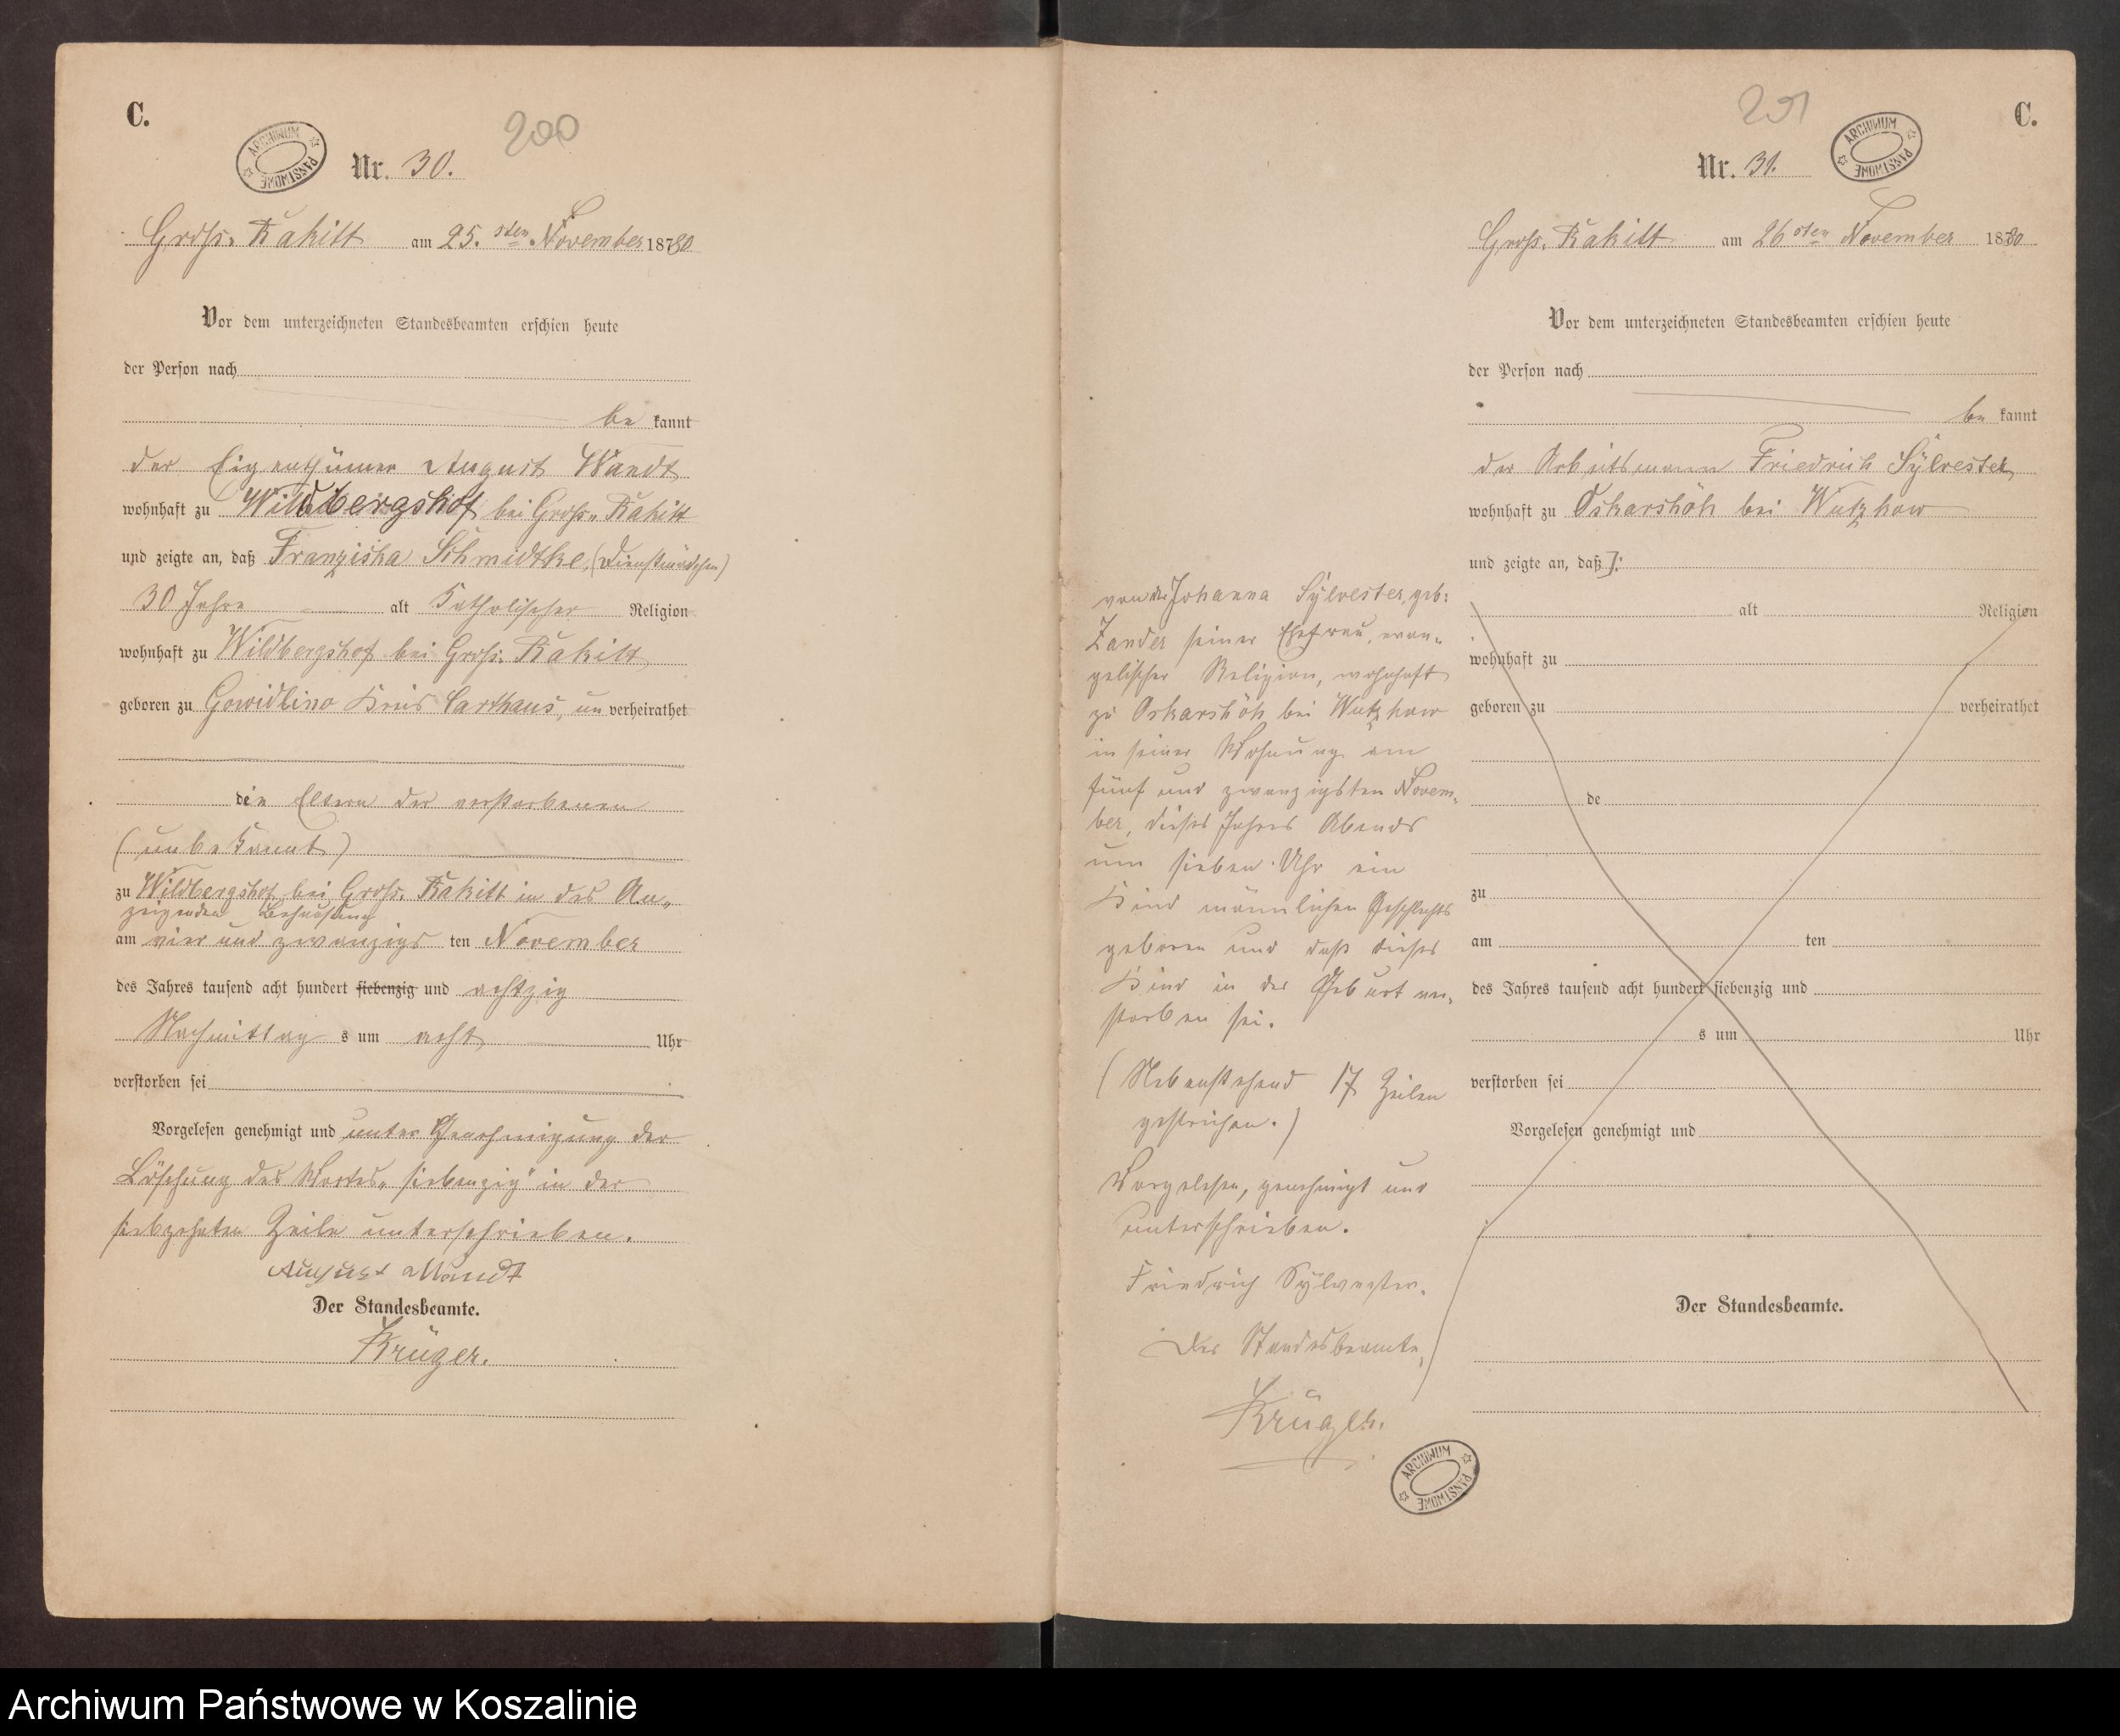 C.
200
ARCHIWUM PAŃSTWOWE
Nr. 30.
Gross-Rakitt am 25.sten November 1880
Vor dem unterzeichneten Standesbeamten erschien heute
der Person nach
be kannt
der Eigenthümer August Wandt
wohnhaft zu Wildbergshof bei Gross-Rakitt
und zeigte an, daß Franziska Schmidtke, (Dienstmädchen)
30 Jahre alt Katholischer Religion
wohnhaft zu Wildbergshof bei Gross-Rakitt
geboren zu Gowidlino Kreis Carthaus, un verheirathet
die Eltern der verstorbenen
(unbekannt)
zu Wildbergshof bei Gross-Rakitt in des An-
zeigenden Behausung
am vier und zwanzigs ten November
des Jahres tausend acht hundert siebenzig und achtzig
Nachmittag s um acht Uhr
verstorben sei
Vorgelesen genehmigt und unter Genehmigung der
Löschung des Wortes "siebenzig" in der
siebzehnten Zeile unterschrieben.
August Wandt
Der Standesbeamte.
Krüger.
C.
201
ARCHIWUM PAŃSTWOWE
Nr. 31.
Gross-Rakitt am 26sten November 1880
Vor dem unterzeichneten Standesbeamten erschien heute
der Person nach
be kannt
der Arbeitsmann Friedrich Sylvester
wohnhaft zu Oskarshöh bei Wutzkow
und zeigte an, daß
alt Religion
wohnhaft zu
geboren zu verheirathet
de
zu
am ten
des Jahres tausend acht hundert siebenzig und
s um Uhr
verstorben sei
Vorgelesen genehmigt und
Der Standesbeamte.
von der Johanna Sylvester, geb:
Zander seiner Ehefrau, evan-
gelischer Religion, wohnhaft
zu Oskarshöh bei Wutzkow
in seiner Wohnung am
fünf und zwanzigsten Novem-
ber, dieses Jahres Abends
um sieben Uhr ein
Kind männlichen Geschlechts
geboren und daß dieses
Kind in der Geburt ver-
storben sei.
(Nebenstehend 17 Zeilen
gestrichen.)
Vorgelesen, genehmigt und
unterschrieben.
Friedrich Sylvester.
Der Standesbeamte,
Krüger.
ARCHIWUM PAŃSTWOWE
Archiwum Państwowe w Koszalinie